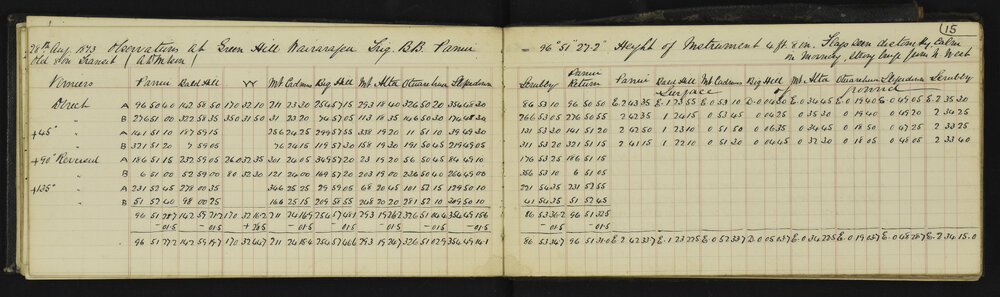 15
28th Aug. 1873 Observations at Green Hill Wairarapa Trig BB. Parui = 96° 51' 27.2" Height of Instrument 4 ft. 8 in. Flags seen distinctly, Calm
Old 8in Transit (A.D. Wilson) in morning, strong breeze from N. West
Verniers Parui Bald Hill W Mt Cadmus Dog Hill Mt Alta Otuwahua Stepedura Scrubby Parui Return Parui Bald Hill Mt Cadmus Dog Hill Mt Alta Otuwahua Stepedura Scrubby
Surface of Ground
Direct A 96 50 40 142 58 50 170 32 10 211 23 30 254 57 15 293 18 40 326 50 20 354 48 30 86 53 10 96 50 50 E. 2 43 35 E. 1 23 55 E. 0 53 10 D. 0 04 30 E. 0 34 45 E. 0 19 40 E. 0 49 05 E. 2 35 30
" B 276 51 00 322 58 35 350 31 50 31 23 20 74 57 05 113 18 35 146 50 30 174 48 30 266 53 05 276 50 55 2 42 35 1 24 15 0 53 45 0 04 25 0 35 30 0 19 40 0 49 20 2 34 25
+45° A 141 51 10 187 59 15 256 24 25 299 57 55 338 19 20 11 51 10 39 49 30 131 53 30 141 51 20 2 42 50 1 23 10 0 51 50 0 06 35 0 34 45 0 18 50 0 47 25 2 33 25
" B 321 51 20 7 59 05 76 24 15 119 57 30 158 19 30 191 50 45 219 49 05 311 53 20 321 51 15 2 41 15 1 22 10 0 51 30 0 04 45 0 37 30 0 18 05 0 48 05 2 33 40
+90° Reversed A 186 51 15 232 59 05 260 32 35 301 24 05 349 57 20 23 19 20 56 50 45 84 49 10 176 53 25 186 51 15
" B 6 51 00 52 59 00 80 32 30 121 24 00 169 57 20 203 19 00 236 50 40 264 49 00 356 53 10 6 51 05
+135° A 231 52 45 278 00 35 346 25 25 29 59 05 68 20 45 101 52 15 129 50 10 221 54 35 231 52 55
" B 51 52 40 98 00 25 166 25 15 209 58 55 248 20 20 281 52 10 309 50 10 41 54 35 51 52 45
96 51 28.7 142 59 21.2 170 32 16.2 211 24 16.9 254 57 48.1 293 19 26.2 326 51 04.4 354 49 15.6 86 53 36.2 96 51 32.5
- 01.5 - 01.5 + 28.5 - 01.5 - 01.5 - 01.5 - 01.5 - 01.5 - 01.5 - 01.5
96 51 27.2 142 59 19.7 170 32 44.7 211 24 15.4 254 57 46.6 293 19 24.7 326 51 02.9 354 49 14.1 86 53 34.7 96 51 31.0 E. 2 42 33.7 E. 1 23 22.5 E. 0 52 33.7 D. 0 05 03.7 E. 0 34 22.5 E. 0 19 03.7 E. 0 48 28.7 E. 2 34 15.0